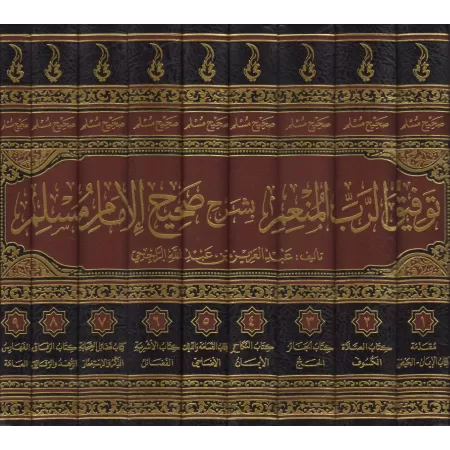 صحيح مسلم صحيح مسلم صحيح مسلم صحيح مسلم صحيح مسلم صحيح مسلم صحيح مسلم صحيح مسلم صحيح مسلم
توفيق الرب المنعم بشرح صحيح الإمام مسلم
تأليف: عبد العزيز بن عبد الله الراجحي
١ ٢ ٣ ٤ ٥ ٦ ٧ ٨ ٩
مقدمة كتاب الصلاة كتاب الجنائز كتاب النكاح كتاب القسامة كتاب الأشربة كتاب فضائل الصحابة كتاب الرقاق الفهارس
كتاب الإيمان - الحيض الكسوف الحج الأيمان الأضاحي الفضائل الزهد والرقائق العامة